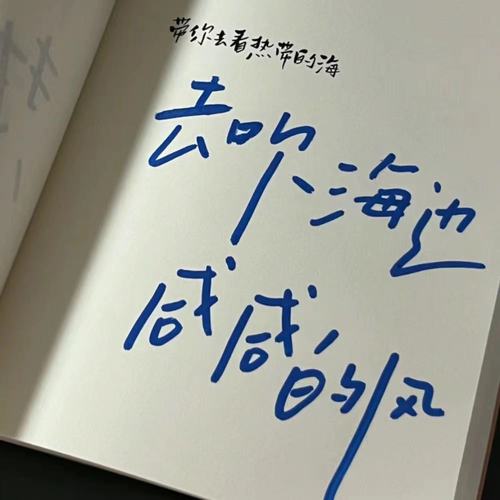 带你去看热带的海
去吹海边
咸咸的风